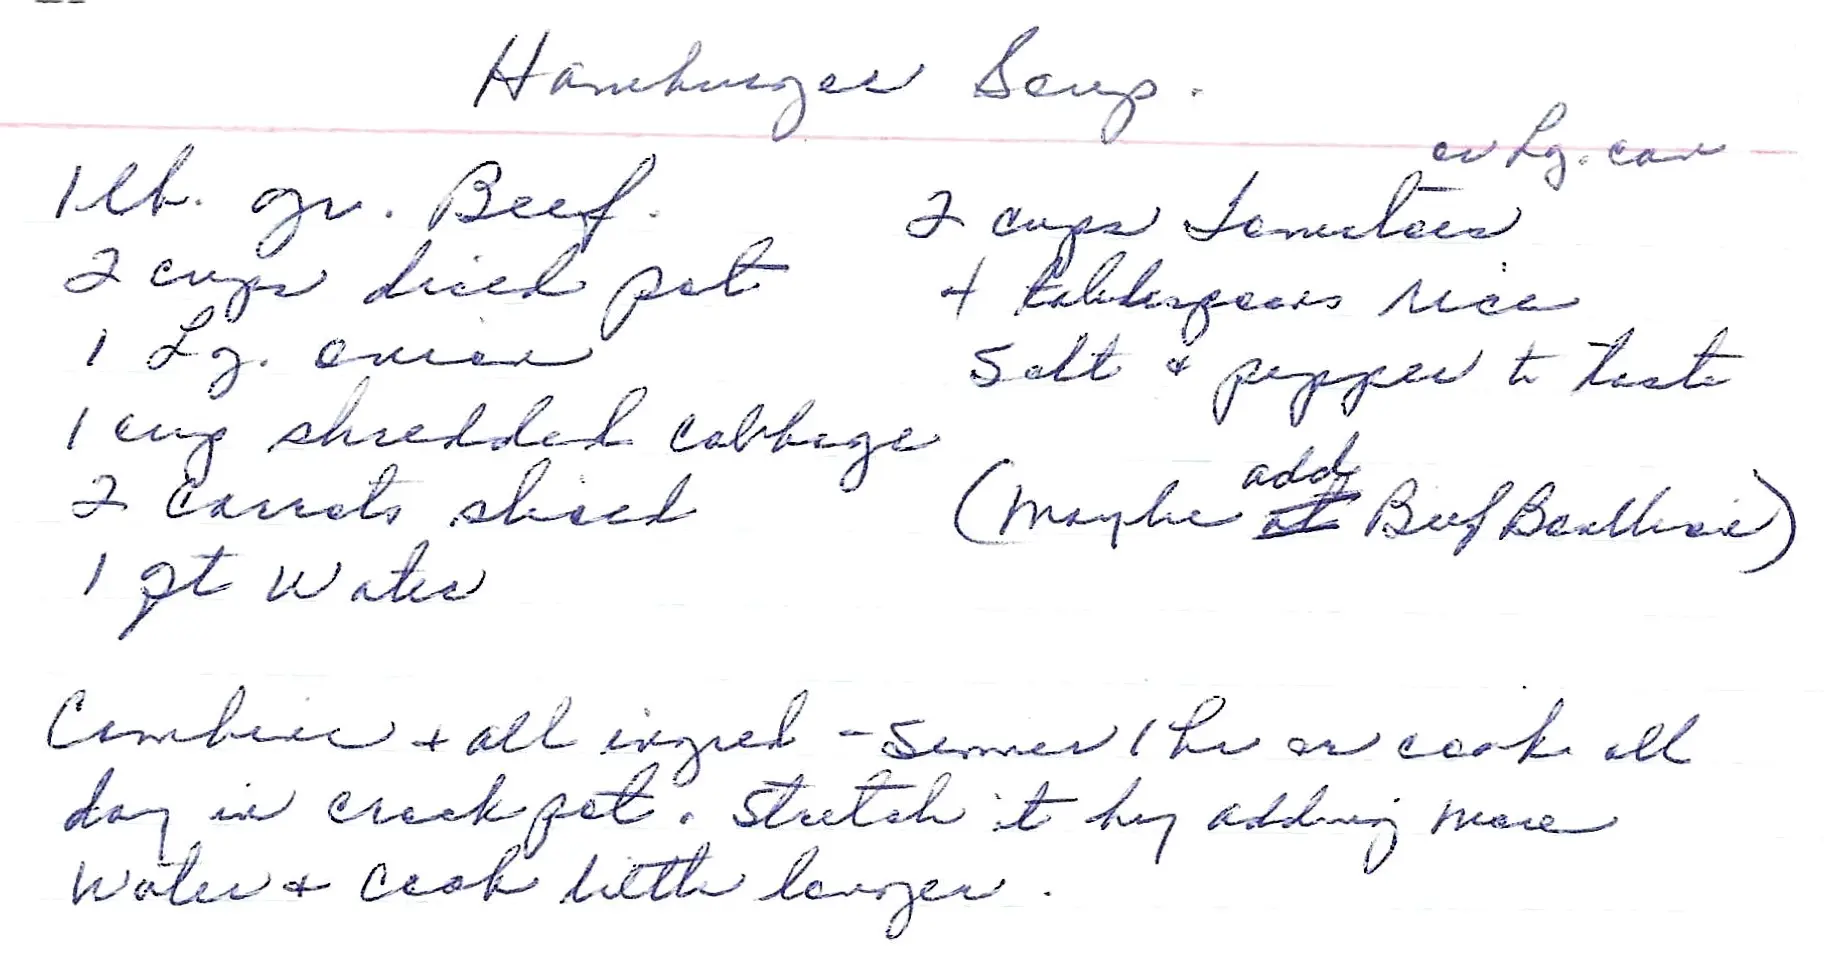 Hamburger Soup.
1 lb. gr. Beef.
2 cups diced pot
1 Lg. onion
1 cup shredded cabbage
2 carrots sliced
1 qt water
or Lg. can
2 cups tomatoes
4 tablespoons rice
Salt & pepper to taste
(Maybe add Beef Boullion)
Combine + all ingred - Simmer 1 hr or cook all
day in crock pot. Stretch it by adding more
water & cook little longer.